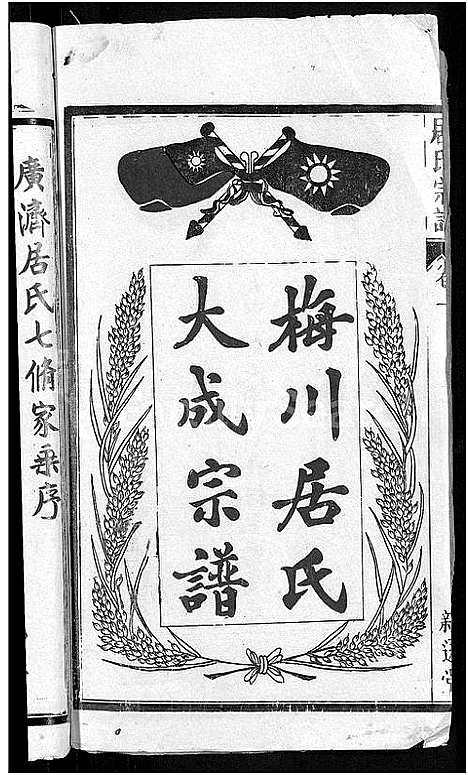 居氏宗譜
卷一
梅川居氏
大成宗譜
廣濟居氏七脩家乘序